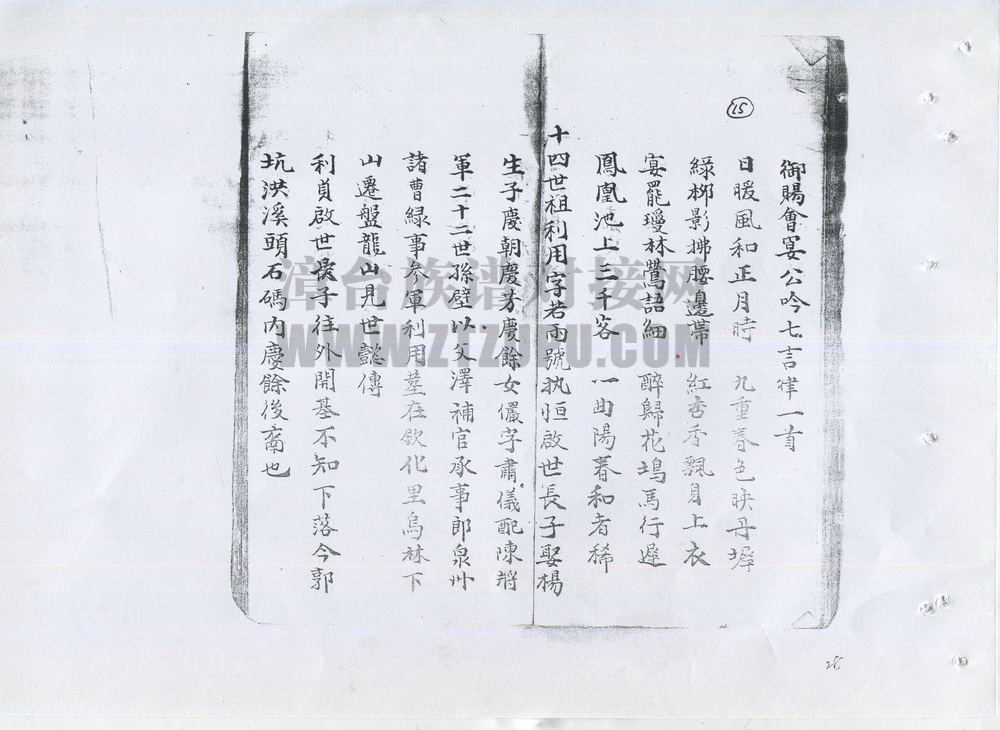 15
御賜會宴公吟七言律一首
日暖風和正月時 九重春色映丹墀
綠柳影拂腰邊帶 紅杏香飄身上衣
宴罷瓊林鶯語細 醉歸花塢馬行遲
鳳凰池上三千客 一曲陽春和者稀
十四世祖利用字若雨號执恒啟世長子娶楊
生子慶朝慶芳慶餘女儼字肅儀配陳將
軍二十二世孫壁以父澤補官承事郎泉州
諸曹緑事參軍利用墓在欽化里烏林下
山遷盤龍山見世懿傳
利貞啟世次子往外開基不知下落今郭
坑洪溪頭石碼內慶餘後裔也
漳台族谱对接网
WWW.ZTZUPU.COM